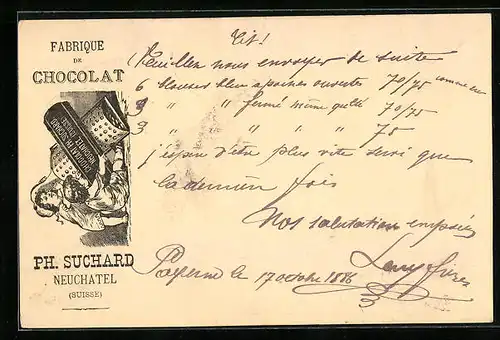 FABRIQUE
DE
CHOCOLAT
PH. SUCHARD
NEUCHATEL
(SUISSE)
Tit!
Veuillez nous envoyer de suite
6 blouses bleu apoches ouvertes 70/75 comme
9 " " fermé même qulté 70/75
3 " " " " 75
j'espère d'etre plus vite servi que
la dernièr fois
Nos salutations empssées
Payerne le 17 octobre 1886
Levy frères